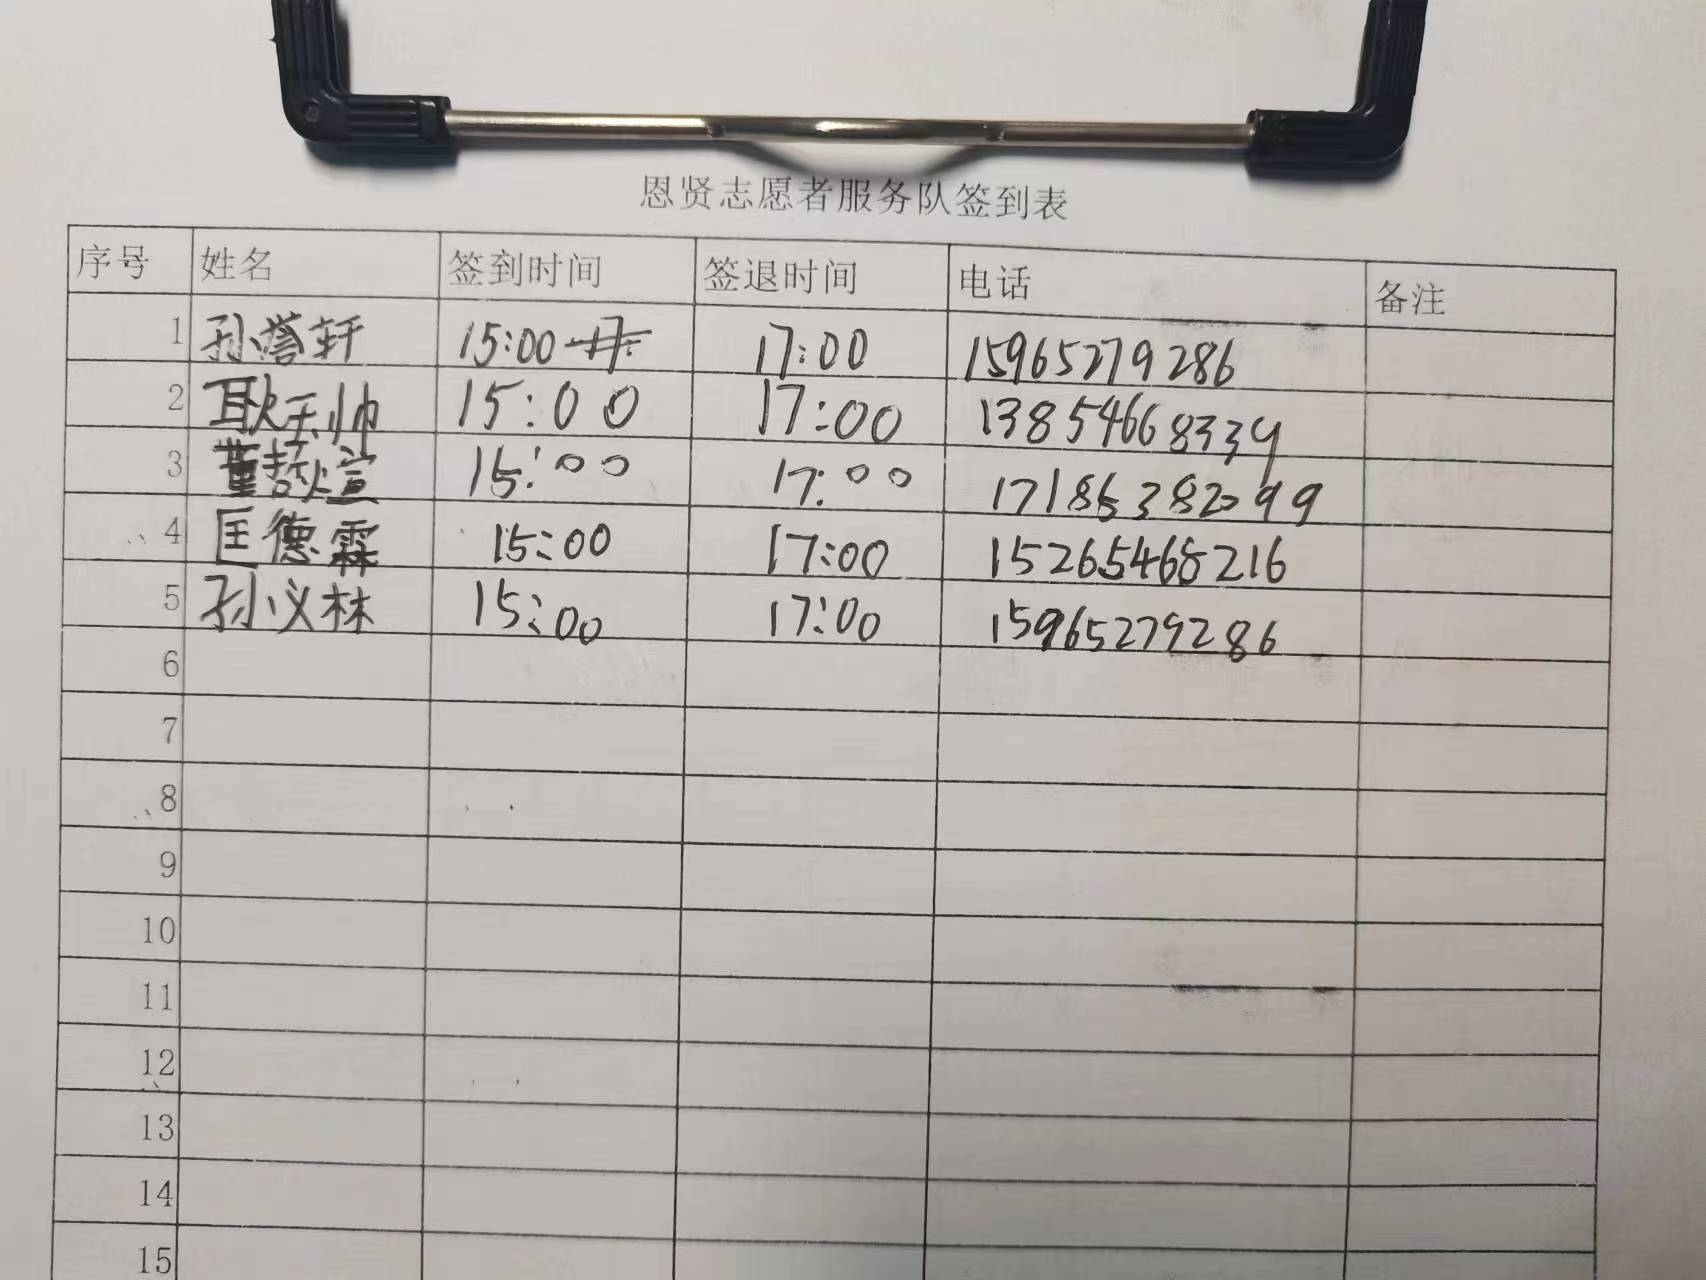 恩贤志愿者服务队签到表
序号 姓名 签到时间 签退时间 电话 备注
1 孙誉轩 15:00 17:00 15965279286
2 耿天帅 15:00 17:00 13854668339
3 董哲煊 15:00 17:00 17185382099
4 匡德霖 15:00 17:00 15265468216
5 孙义林 15:00 17:00 15965279286
6
7
8
9
10
11
12
13
14
15